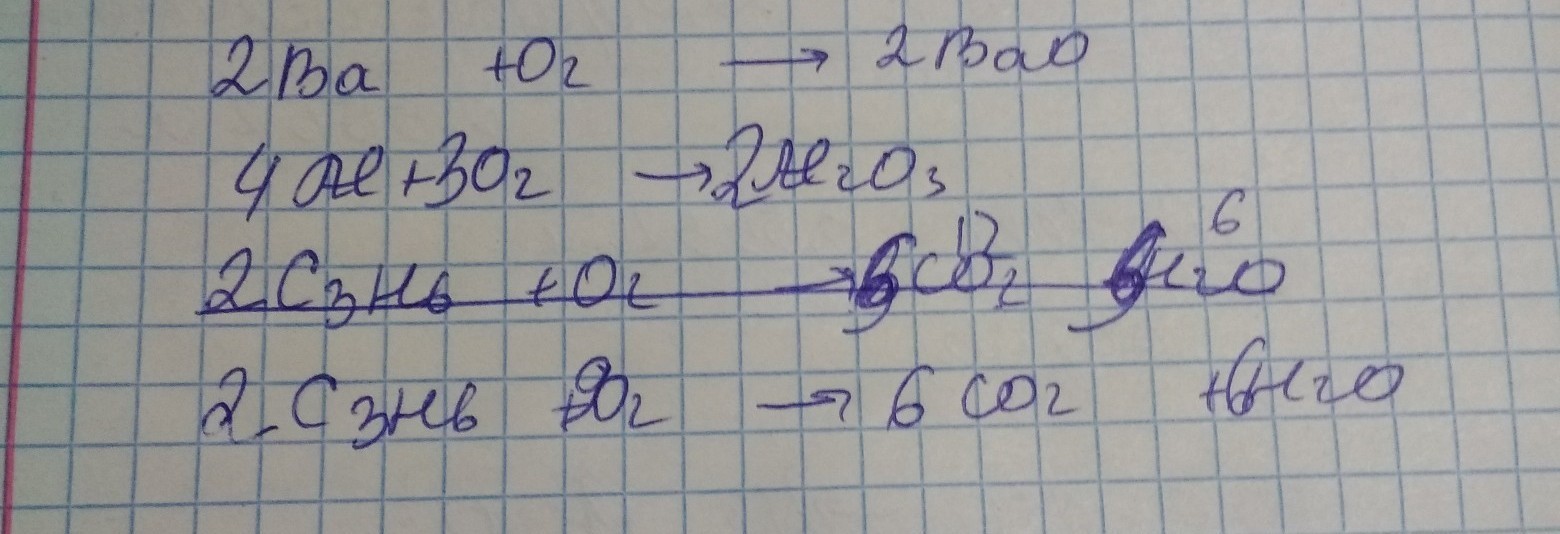 2Ba + O₂ → 2BaO
4Al + 3O₂ → 2Al₂O₃
2C₃H₆ + O₂ → CO₂ H₂O
2C₃H₆ + 9O₂ → 6CO₂ + 6H₂O